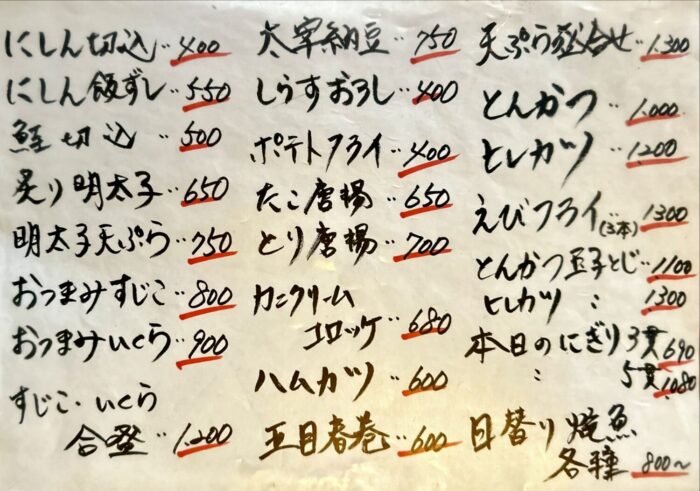 にしん切込‥400
にしん飯ずし‥550
鮭切込‥500
炙り明太子‥650
明太子天ぷら‥750
おつまみすじこ‥800
おつまみいくら‥900
すじこ・いくら
合盛‥1.200
太宰納豆‥750
しらすおろし‥400
ポテトフライ‥400
たこ唐揚‥650
とり唐揚‥700
カニクリーム
コロッケ‥680
ハムカツ‥600
五目春巻‥600
天ぷら盛合せ‥1.300
とんかつ‥1.000
ヒレカツ‥1.200
えびフライ(3本)‥1300
とんかつ玉子とじ‥1100
ヒレカツ 〃 1300
本日のにぎり3貫690
〃 5貫1.080
日替り焼魚
各種800〜